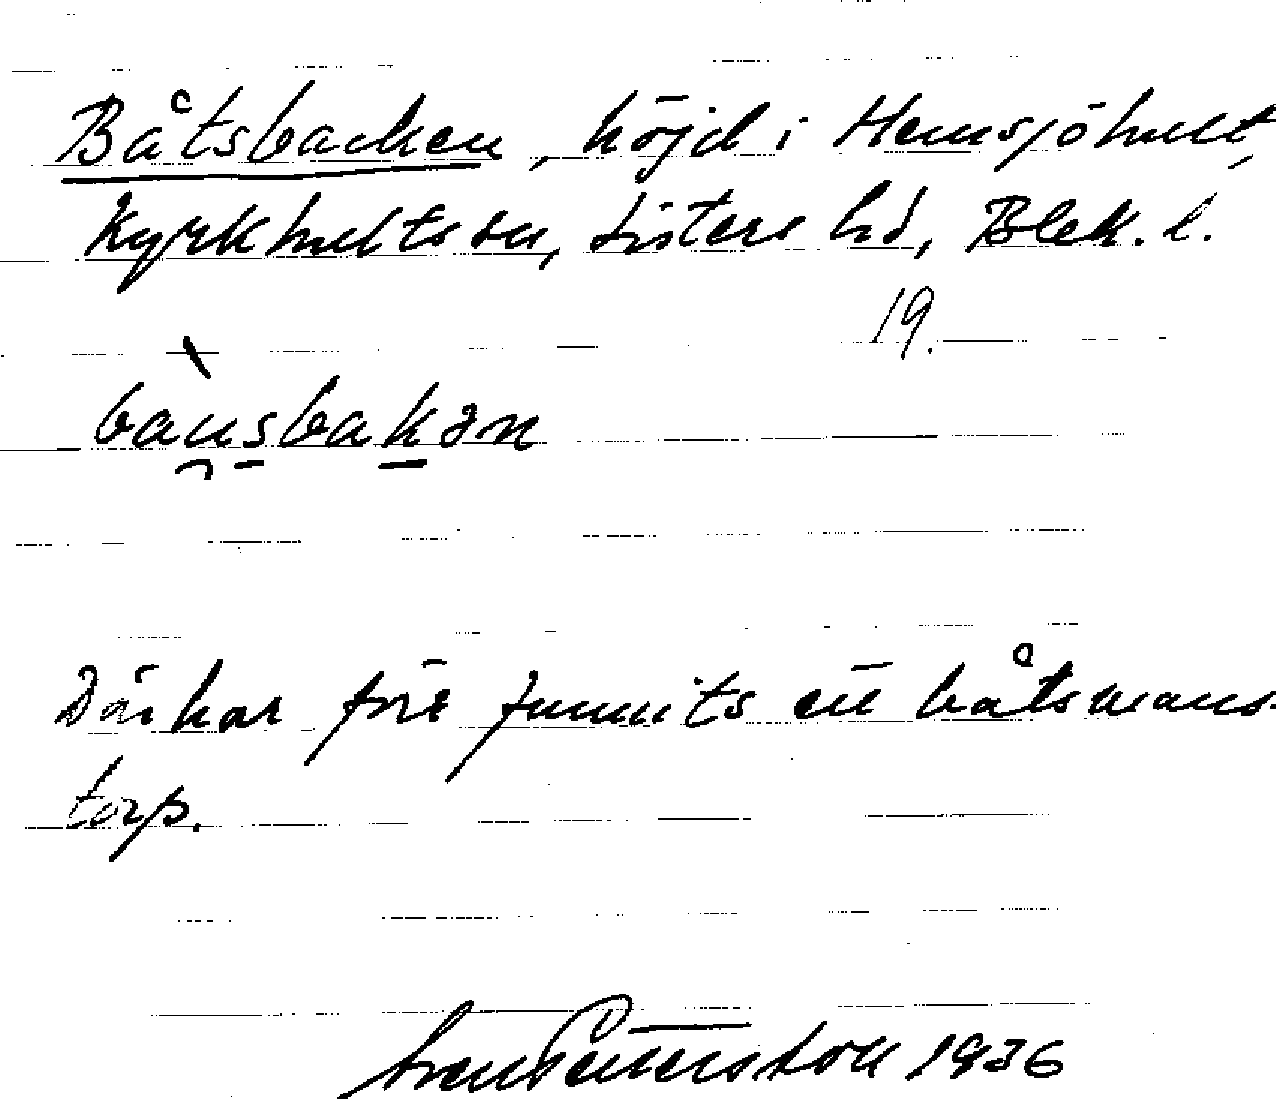 Båtsbacken, höjd i Hemsjöhult,
Kyrkhults sn, Listers hd, Blek. l.
19.
bàusbakən
Där har förr funnits ett båtsmans-
torp.
Sven Petersson 1936